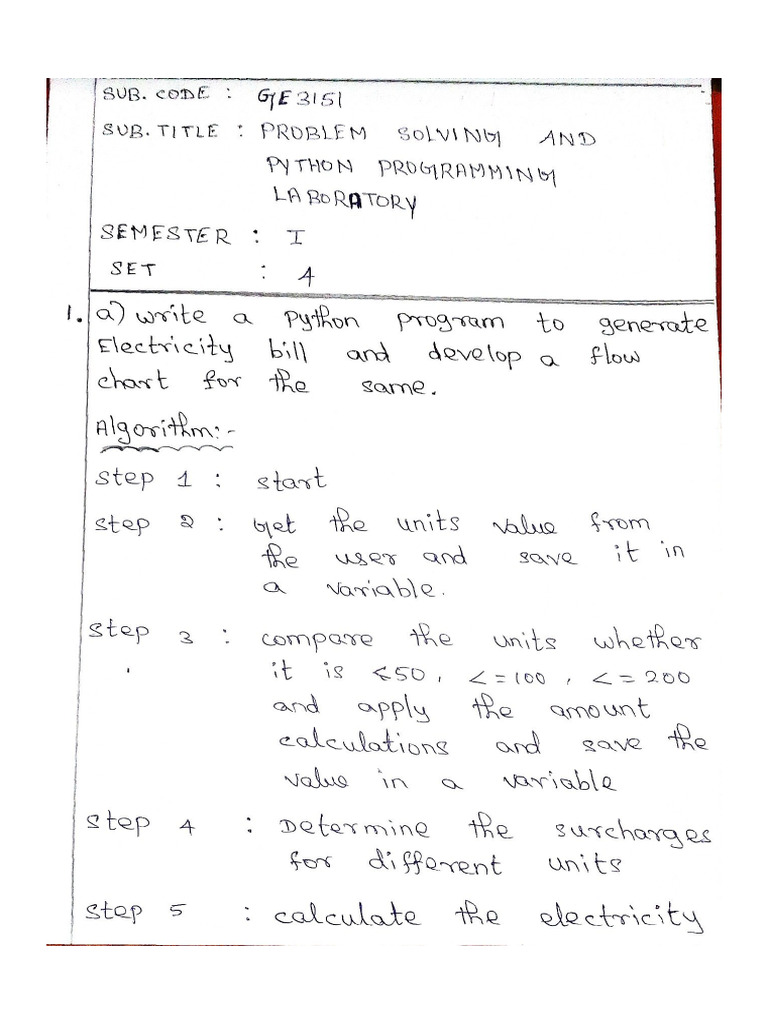 SUB. CODE : GE3151
SUB. TITLE : PROBLEM SOLVING AND
PYTHON PROGRAMMING
LABORATORY
SEMESTER : I
SET : 4
1. a) write a python program to generate
Electricity bill and develop a flow
chart for the same.
Algorithm:-
step 1 : start
step 2 : Get the units value from
the user and save it in
a variable.
step 3 : compare the units whether
it is <50, <=100, <=200
and apply the amount
calculations and save the
value in a variable
step 4 : Determine the surcharges
for different units
step 5 : calculate the electricity